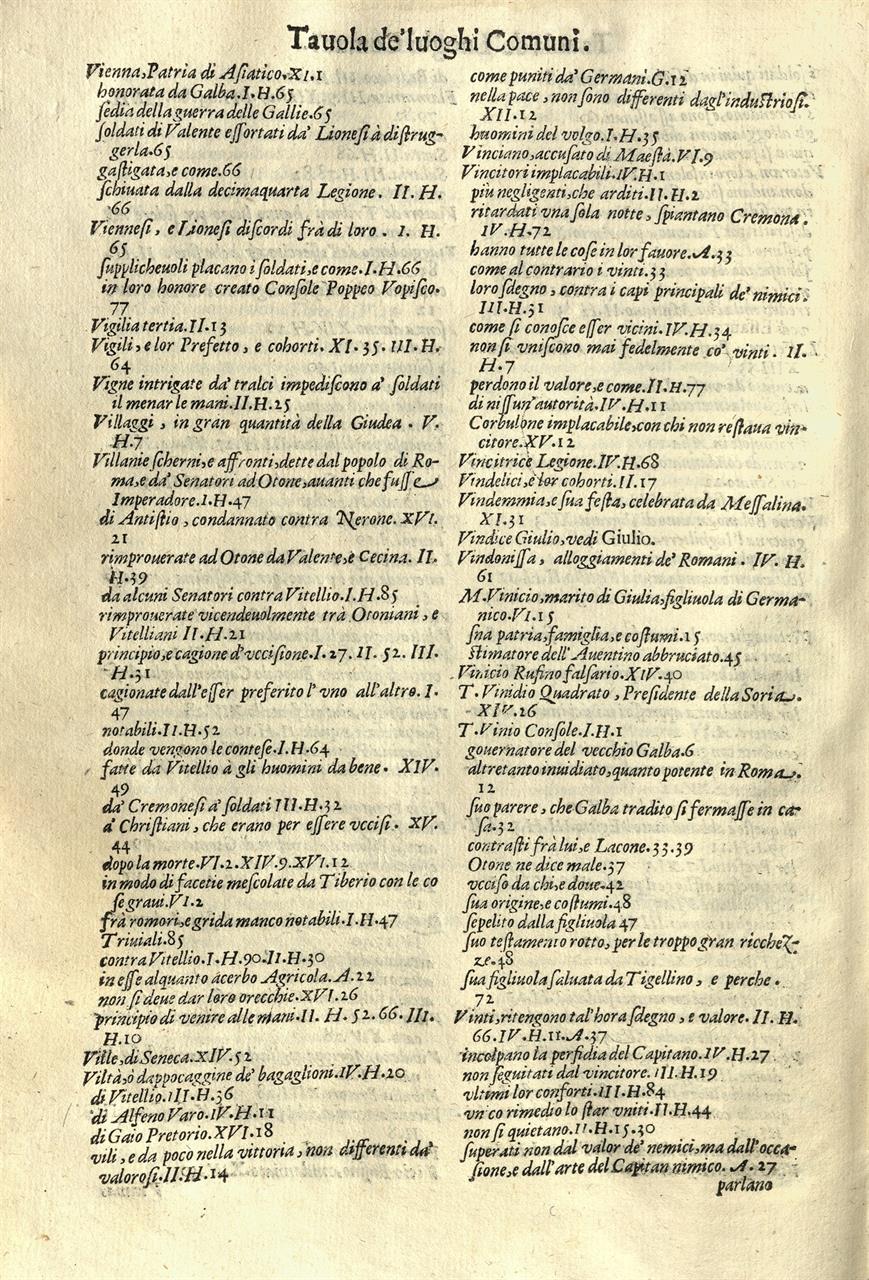 Tauola de'luoghi Comuni.
Vienna, Patria di Asiatico.XI.1
honorata da Galba.I.H.65
sedia della guerra delle Gallie.65
soldati di Valente essortati da' Lionesi à distrug-
gerla.65
gastigata, e come.66
schiuata dalla decimaquarta Legione. II. H.
66
Viennesi, e Lionesi discordi frà di loro. I. H.
65
supplicheuoli placano i soldati, e come.I.H.66
in loro honore creato Console Poppeo Vopisco.
77
Vigilia tertia.II.13
Vigili, e lor Prefetto, e cohorti. XI.35.III.H.
64
Vigne intrigate da' tralci impediscono a' soldati
il menar le mani.II.H.25
Villaggi, in gran quantità della Giudea. V.
H.7
Villanie scherni, e affronti, dette dal popolo di Ro-
ma, e da' Senatori ad Otone, auanti che fusse
Imperadore.I.H.47
di Antistio, condannato contra Nerone. XVI.
21
rimprouerate ad Otone da Valente, e Cecina. II.
H.39
da alcuni Senatori contra Vitellio.I.H.85
rimprouerate vicendeuolmente trà Otoniani, e
Vitelliani II.H.21
principio, e cagione d'vccisione.I.27.II.52.III.
H.31
cagionate dall'esser preferito l'vno all'altro. I.
47
notabili.II.H.52
donde vengono le contese.I.H.64
fatte da Vitellio à gli huomini da bene. XIV.
49
da' Cremonesi a' soldati III.H.32
a' Christiani, che erano per essere vccisi. XV.
44
dopo la morte.VI.2.XIV.9.XVI.12
in modo di facetie mescolate da Tiberio con le co
se graui.VI.2
frà romori, e grida manco notabili.I.H.47
Triuiali.85
contra Vitellio.I.H.90.II.H.30
in esse alquanto acerbo Agricola.A.22
non si deue dar loro orecchie.XVI.26
principio di venire alle mani.II.H.52.66.III.
H.10
Ville, di Seneca.XIV.52
Viltà, ò dappocaggine de' bagaglioni.IV.H.20
di Vitellio.III.H.36
di Alfeno Varo.IV.H.11
di Gaio Pretorio.XVI.18
vili, e da poco nella vittoria, non differenti da'
valorosi.II.H.14
come puniti da' Germani.G.12
nella pace, non sono differenti dagl'industriosi.
XII.12
huomini del volgo.I.H.35
Vinciano, accusato di Maestà.VI.9
Vincitori implacabili.IV.H.1
più negligenti, che arditi.II.H.2
ritardati vna sola notte, spiantano Cremona.
IV.H.72
hanno tutte le cose in lor fauore.A.33
come al contrario i vinti.33
loro sdegno, contra i capi principali de' nimici.
III.H.31
come si conosce esser vicini.IV.H.34
non si vniscono mai fedelmente co' vinti. II.
H.7
perdono il valore, e come.II.H.77
di nissun'autorità.IV.H.11
Corbulone implacabile, con chi non restaua vin-
citore.XV.12
Vincitrice Legione.IV.H.68
Vindelici, e lor cohorti.II.17
Vindemmia, e sua festa, celebrata da Messalina.
XI.31
Vindice Giulio, vedi Giulio.
Vindonissa, alloggiamenti de' Romani. IV. H.
61
M.Vinicio, marito di Giulia, figliuola di Germa-
nico.VI.15
sna patria, famiglia, e costumi.15
stimatore dell'Auentino abbruciato.45
Vinicio Rufino falsario.XIV.40
T.Vinidio Quadrato, Presidente della Soria.
XIV.26
T.Vinio Console.I.H.1
gouernatore del vecchio Galba.6
altretanto inuidiato, quanto potente in Roma.
12
suo parere, che Galba tradito si fermasse in ca-
sa.32
contrasti frà lui, e Lacone.33.39
Otone ne dice male.37
vcciso da chi, e doue.42
sua origine, e costumi.48
sepelito dalla figliuola 47
suo testamento rotto, per le troppo gran ricchez-
ze.48
sua figliuola saluata da Tigellino, e perche.
72
Vinti, ritengono tal'hora sdegno, e valore. II. H.
66.IV.H.11.A.37
incolpano la perfidia del Capitano.IV.H.27
non seguitati dal vincitore.III.H.19
vltimi lor conforti.III.H.84
vn co rimedio lo star vniti.II.H.44
non si quietano.II.H.15.30
superati non dal valor de' nemici, ma dall'occa-
sione, e dall'arte del Capitan nimico. A.27
parlano